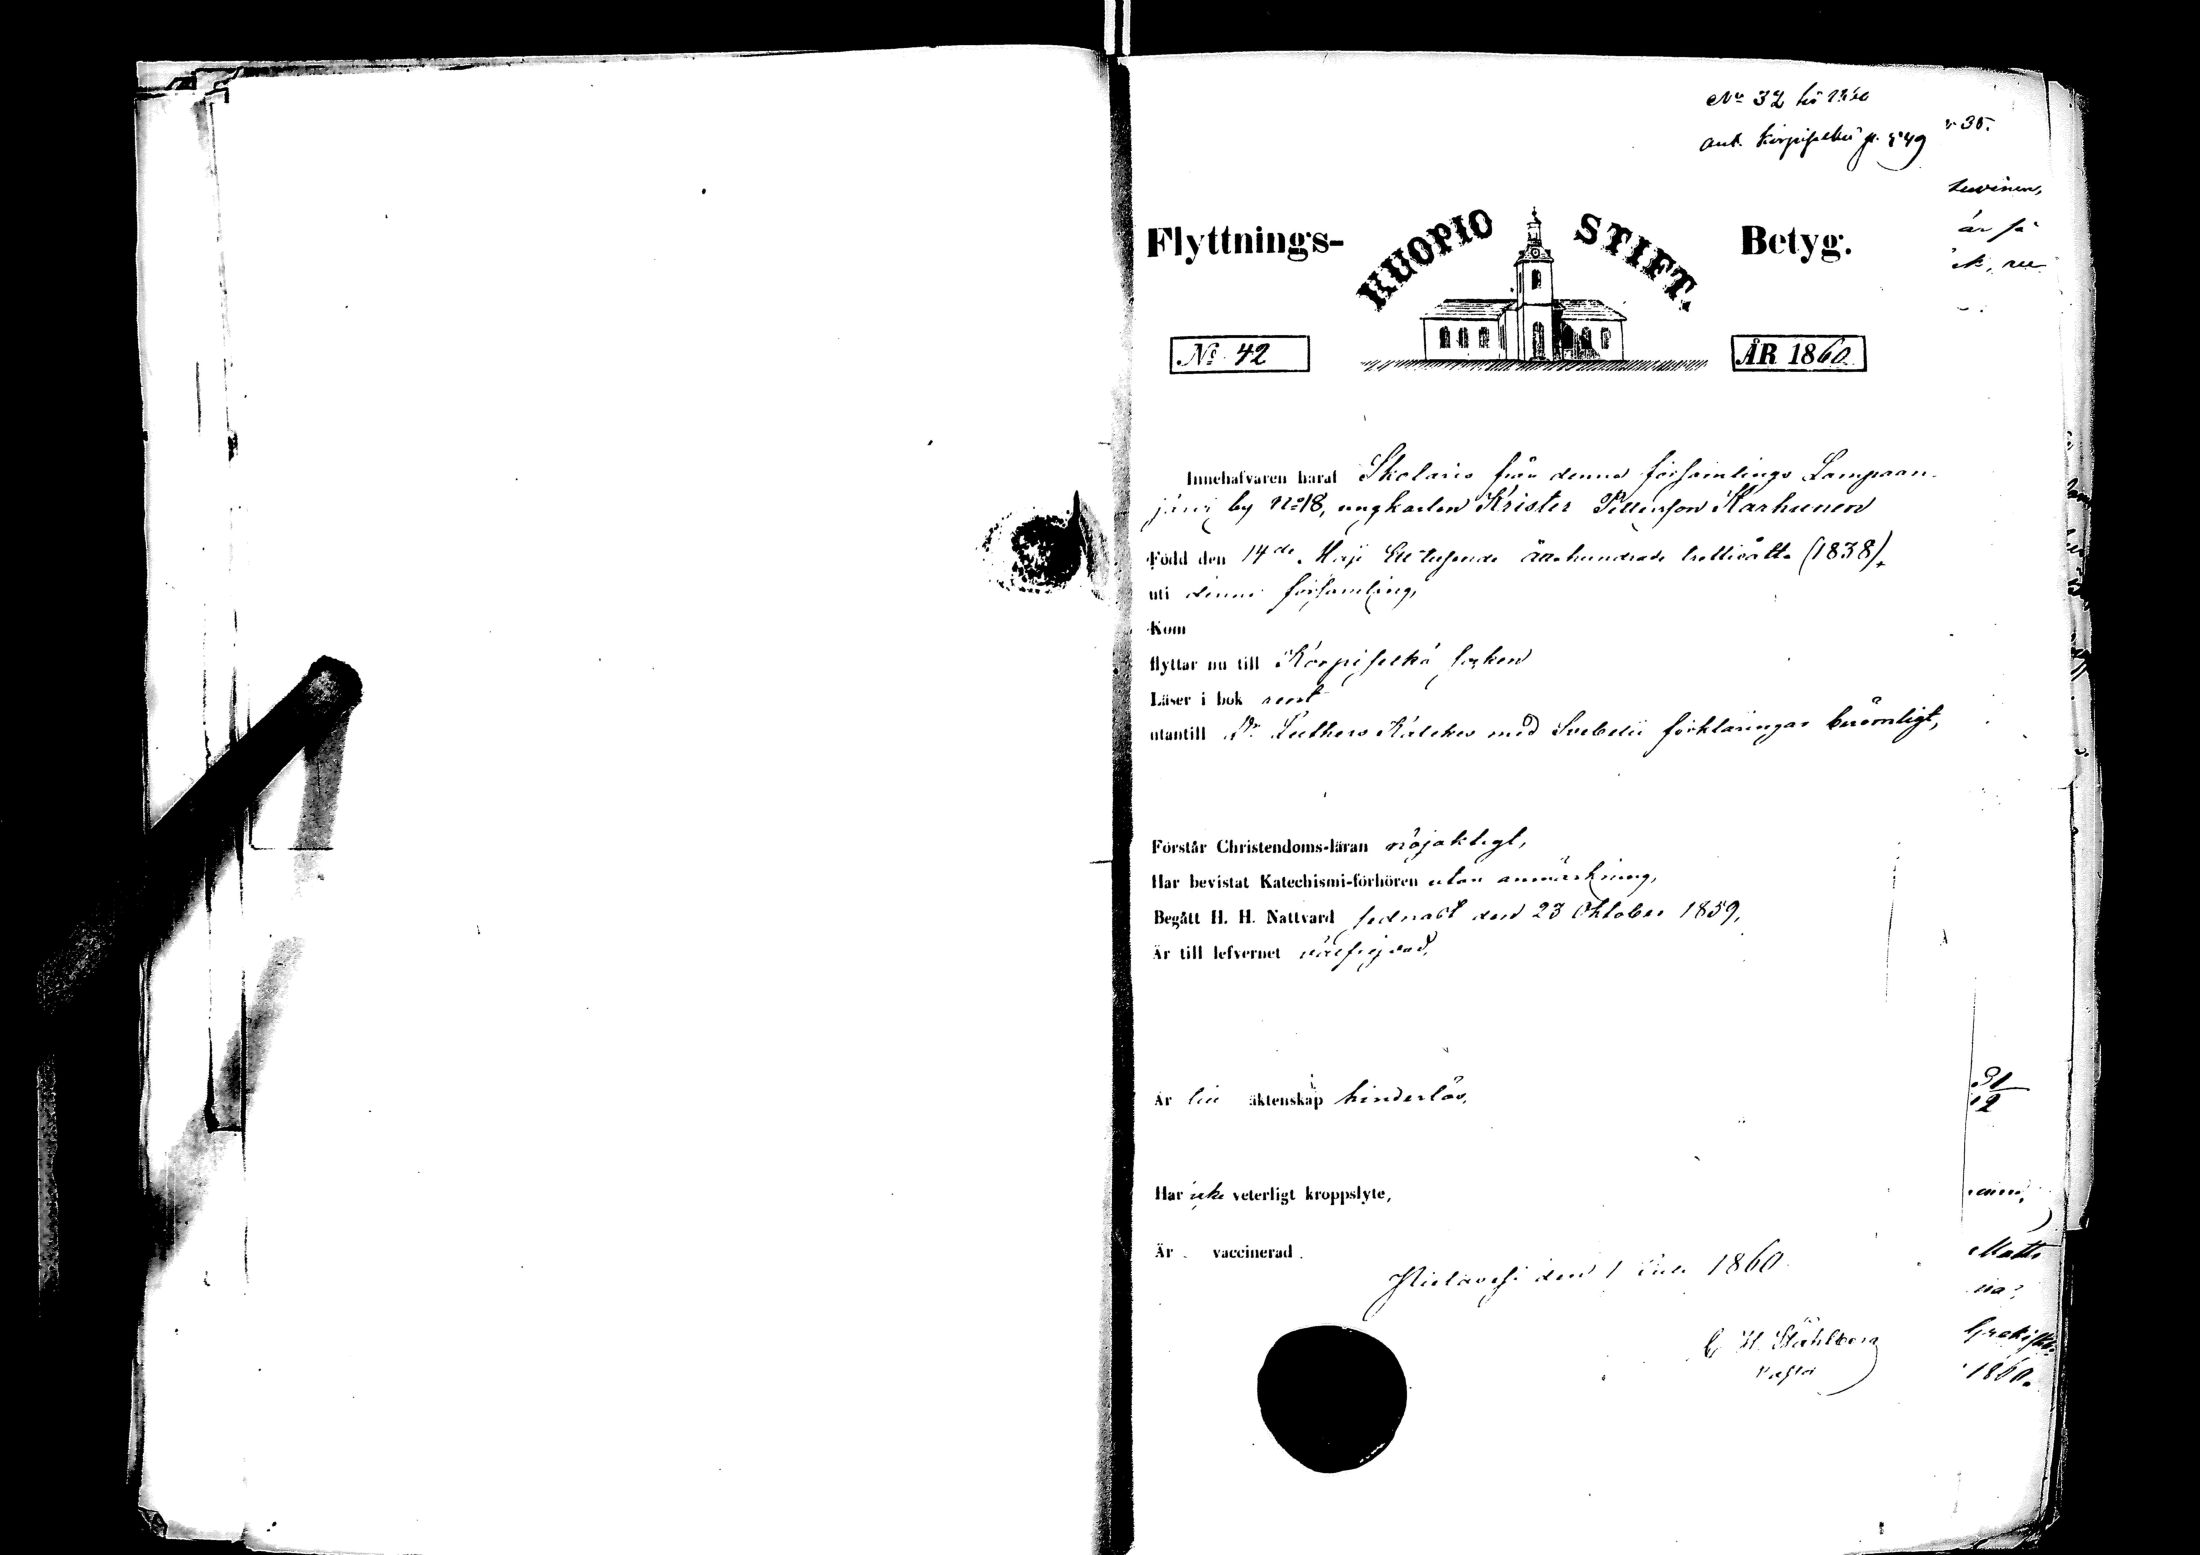 No 32 1860
ant. Korpiselkä p. 549
Flyttnings- KUOPIO STIFT. Betyg.
No 42 ÅR 1860.
Innehafvaren häraf Skolaris från denna församlings Lampaan
järvi by No 18, ungkarlen Krister Pettersson Karhunen
Född den 14de Maji Ett tusende åttahundrade trettioåtta (1838),
uti denna församling,
Kom
flyttar nu till Korpiselkä socken
Läser i bok rent
utantill Dr Luthers Kateches med Svebelii förklaringar berömligt,
Förstår Christendoms-läran nöjaktigt,
Har bevistat Katechismi-förhören utan anmärkning,
Begått H. H. Nattvard sednast den 23 Oktober 1859,
Är till lefvernet välfrejdad,
Är till äktenskap hinderlös,
Har icke veterligt kroppslyte,
Är vaccinerad.
Pielavesi den 1 1860
C. H. Ståhlberg
Pastor
35.
är så
31
12
Matts
1860.